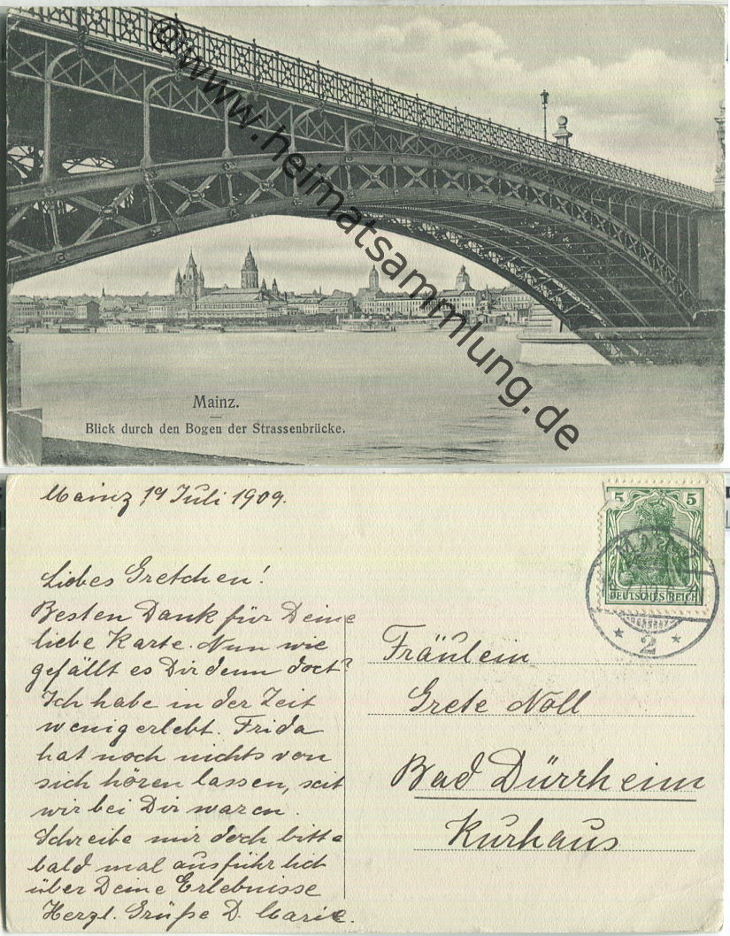 @www.heimatsammlung.de
Mainz.
Blick durch den Bogen der Strassenbrücke.
Mainz 19 Juli 1909.
Liebes Gretchen!
Besten Dank für Deine
liebe Karte. Nun wie
gefällt es Dir denn dort?
Ich habe in der Zeit
wenig erlebt. Frida
hat noch nichts von
sich hören lassen, seit
wir bei Dir waren.
Schreibe mir doch bitte
bald mal ausführlich
über Deine Erlebnisse
Herzl. Grüße D. Marie.
5 5
DEUTSCHES REICH
MAINZ
* 2 *
Fräulein
Grete Noll
Bad Dürrheim
Kurhaus